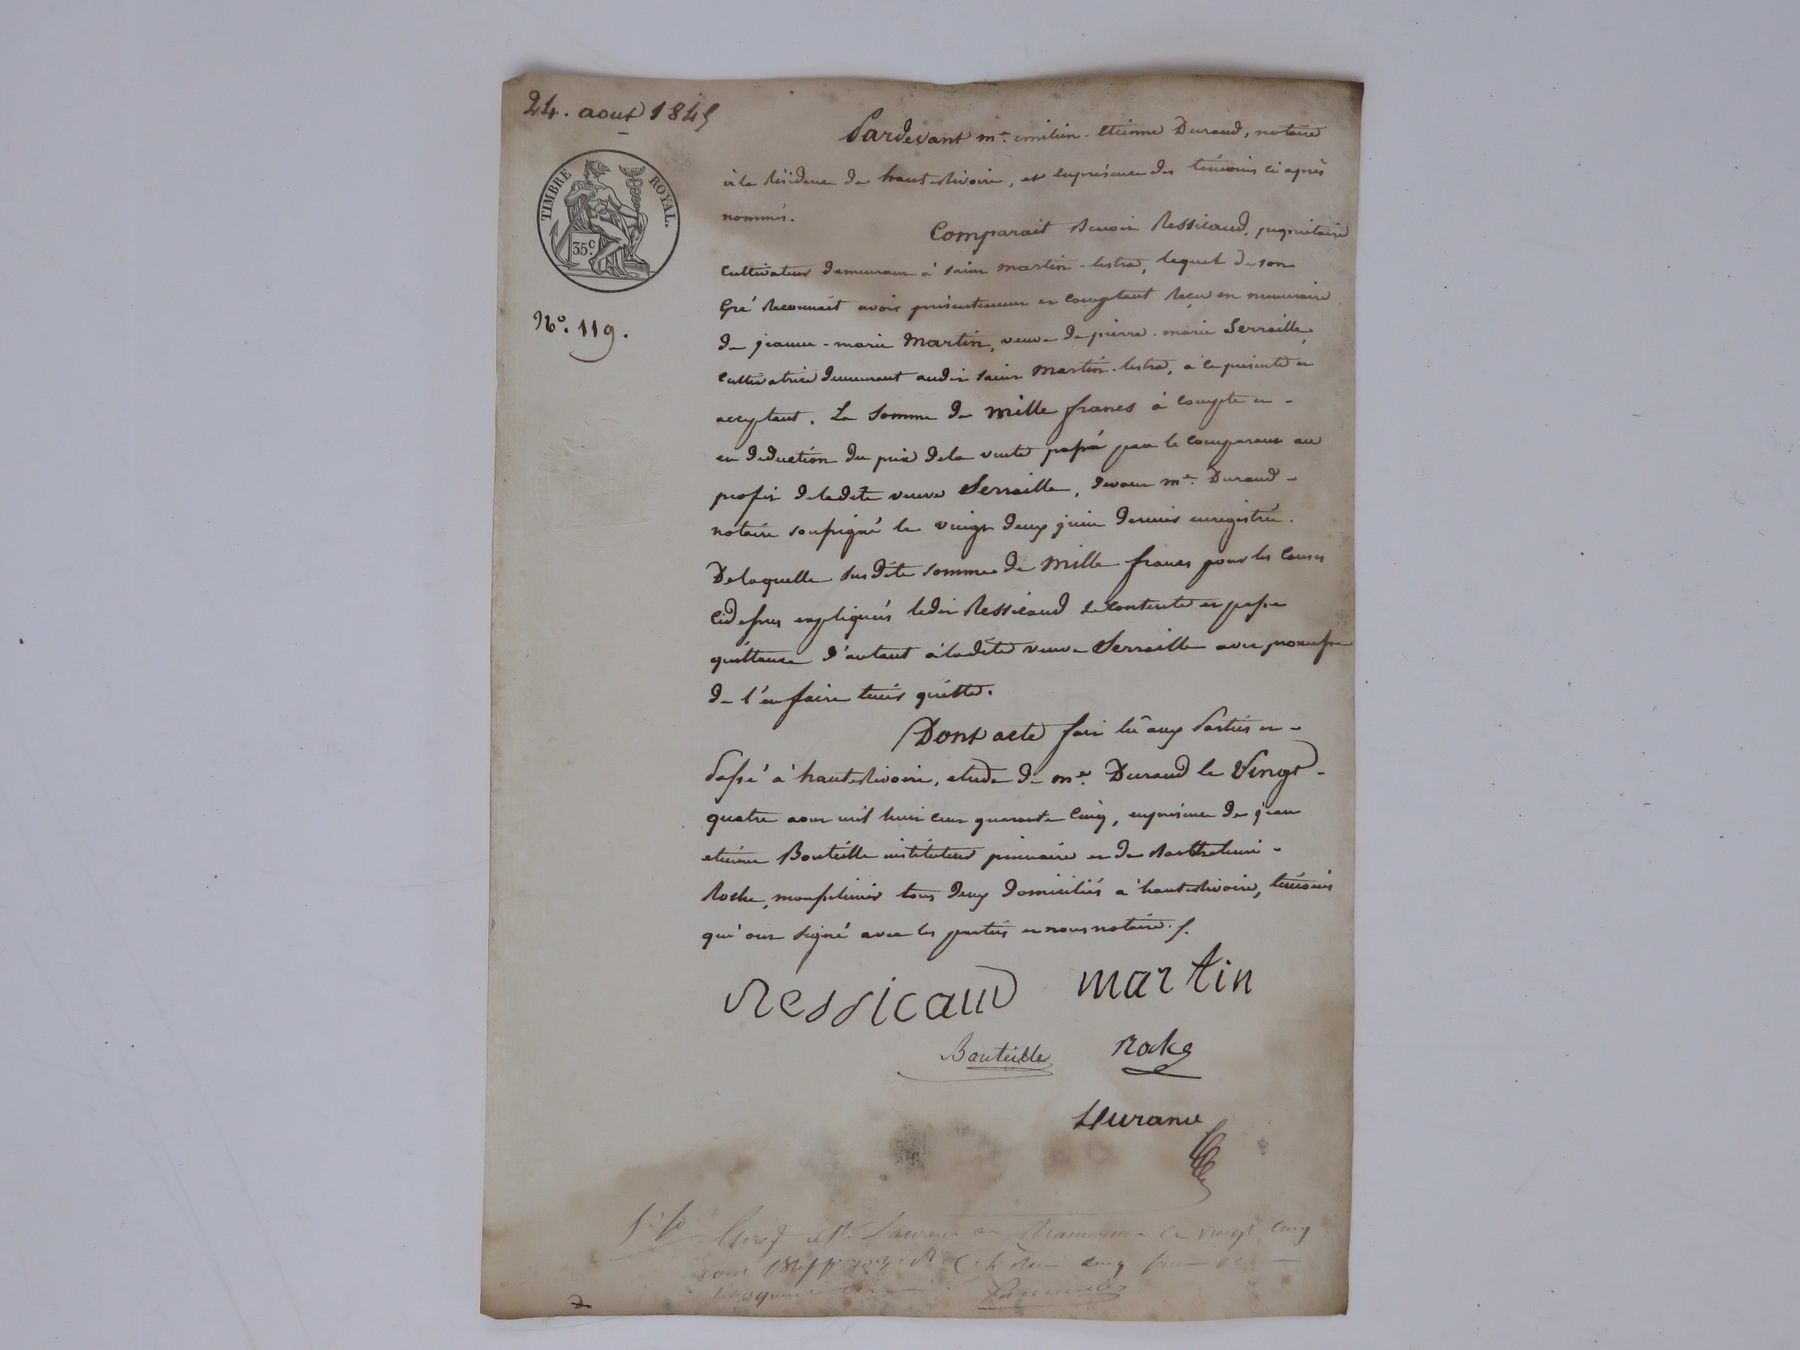 24. aout 1845
TIMBRE ROYAL.
35 c.
N°. 119.
Pardevant me. emilien-etienne Durand, notaire
à la résidence de hauterivoire, et enprésence des témoins ci après
nommés.
Comparait Benoit Ressicaud, propriétaire
cultivateur demeurant à saint martin-lestra, lequel de son
gré reconnait avoir présentement et comptant reçu en numeraire
de jeanne-marie Martin, veuve de pierre-marie Serraille,
cultivatrice demeurant audit saint Martin-lestra, à ce présente et
acceptant. La somme de mille francs à compte et -
en deduction du prix dela vente passé par le comparant au
profit deladite veuve Serraille, devant me. Durand -
notaire soussigné le vingt deux juin dernier enregistré.
Delaquelle susdite somme de Mille francs pour les causes
cidessus expliquées ledit Ressicaud se contente et passe
quittance d'autant àladite veuve Serraille avec promesse
de l'en faire tenir quitte.
Dont acte fait lû aux Parties et -
Passé à hauterivoire, etude de me. Durand le Vingt -
quatre aout mil huit cent quarante cinq, enprésence de jean
etienne Bouteille instituteur primaire et de Barthelemi -
Roche, mousselinier tous deux domiciliés à hauterivoire, témoins
qui ont signé avec les parties et nous notaire.
Ressicaud martin
Bouteille Roche
Durand
vingt cinq
cinq